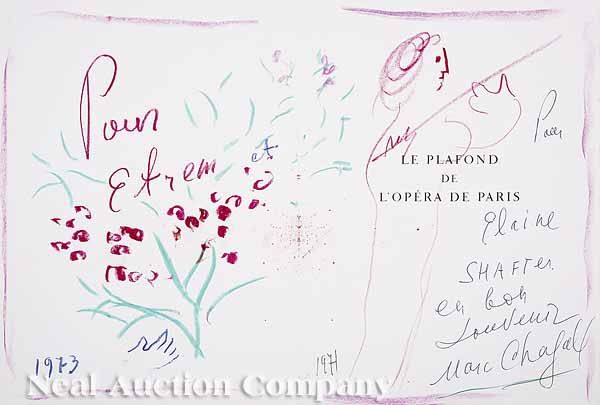 Pour
et
Etrem
1973
LE PLAFOND
DE
L'OPÉRA DE PARIS
Pour
Elaine
SHAFTer
en bon
souvenir
Marc Chagall
1971
Neal Auction Company